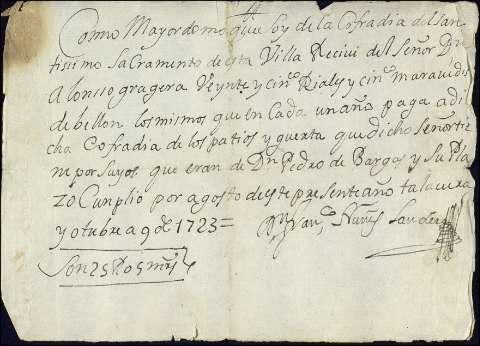 Como Mayordomo que soy de la Cofradia del San
tissimo Sacramento de esta Villa Recivi del señor Dn
Alonsso gragera Veynte y cinco Riales y cinco maravedis
de bellon los mismos que en Cada un año paga a di
cha Cofradia de los patios y guerta que dicho Señor tie
ne por suyos que eran de Dn Pedro de Bargas y su Pla
zo Cunplio por agosto de este presente año talavera
y otubre a 9 de 1723 =
Son 25 Rs 05 mrs